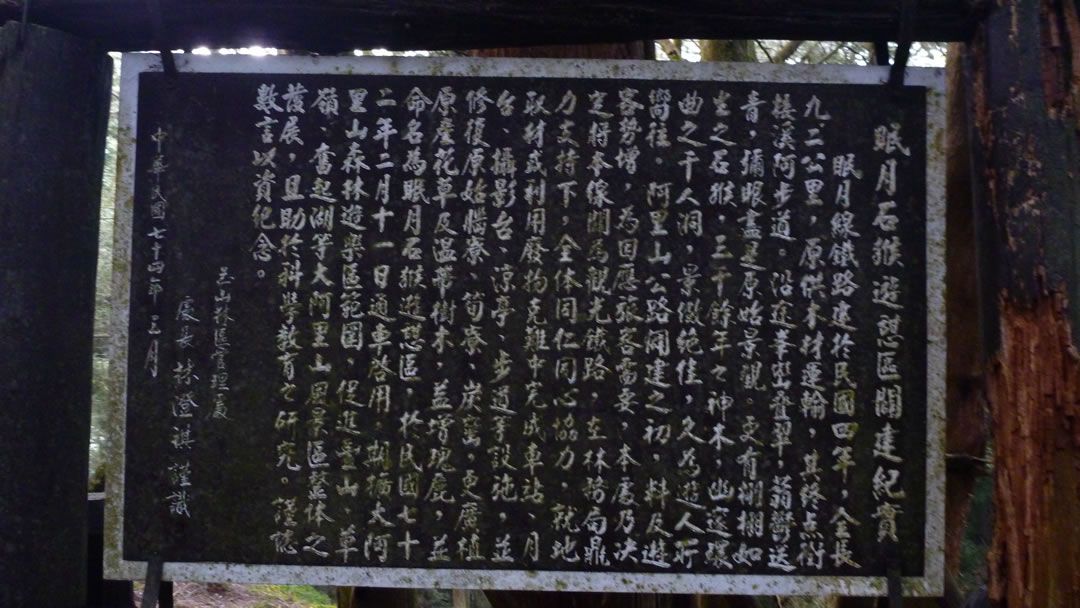 眠月石猴遊憩區闢建紀實
眠月線鐵路建於民國四年，全長
九二公里，原供木材運輸，其終点銜
接溪阿步道。沿途峯巒疊翠，蓊鬱送
青，彌眼盡是原始景觀。更有栩栩如
生之石猴，三千餘年之神木，幽邃環
曲之千人洞，景緻絶佳，久為遊人所
嚮往。阿里山公路闢建之初，料及遊
客勢增，為因應旅客需要，本處乃決
定將本線闢為觀光鐵路，在林務局鼎
力支持下，全体同仁同心協力，就地
取材或利用廢物克難中完成車站、月
台、攝影台、涼亭、步道等設施，並
修復原始腦寮、筍寮、炭窯，更廣植
原產花草及温帶樹木，益增瑰麗，並
命名為眠月石猴遊憩區，於民國七十
二年二月十一日通車啓用，期擴大阿
里山森林遊樂區範圍，促進豐山、草
嶺、奮起湖等大阿里山風景區整体之
發展，且助於科學教育之研究。謹誌
數言以資紀念。
玉山林區管理處
處長 林澄祺 謹識
中華民國七十四年 三月